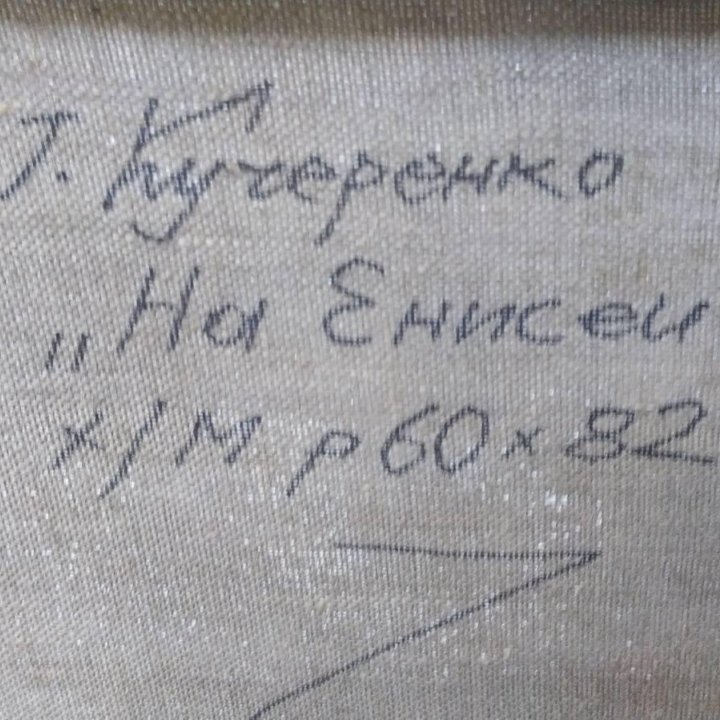 Г. Кучеренко
„На Енисеи
х/м р 60×82